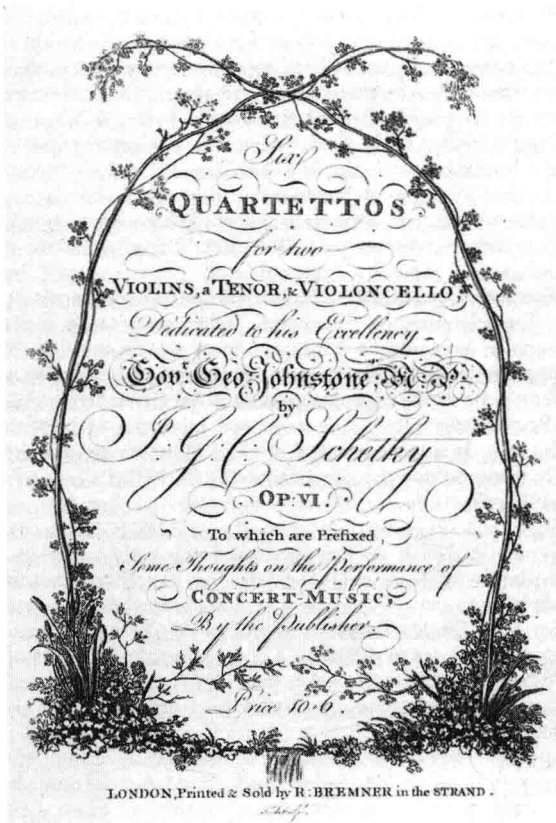 Six
QUARTETTOS
for two
VIOLINS, a TENOR, & VIOLONCELLO,
Dedicated to his Excellency
Govr. Geo: Johnstone, M.P.
by
J. G. C. Schetky
OP: VI.
To which are Prefixed,
Some Thoughts on the Performance of
CONCERT-MUSIC
By the Publisher
Price 10-6.
LONDON, Printed & Sold by R: BREMNER in the STRAND.